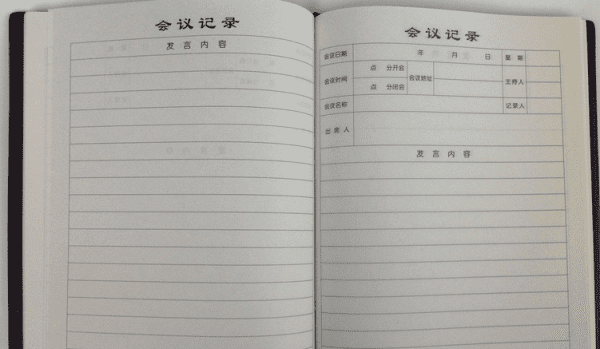 会议记录
发言内容
会议记录
会议日期 年 月 日 星期
会议时间 点 分开会 会议地址 主持人
点 分闭会
会议名称 记录人
出席人
发言内容